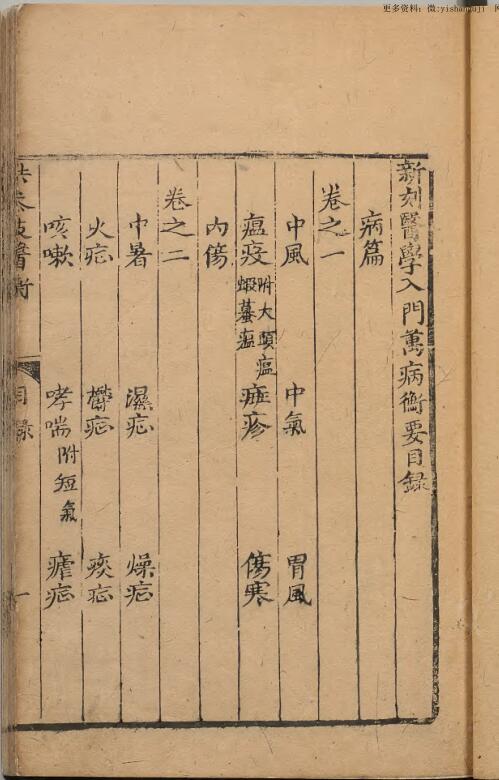 更多资料：微:yishanguji
新刻醫學入門萬病衡要目錄
病篇
卷之一
中風 中氣 冒風
瘟疫 附大頭瘟 蝦蟇瘟 痧疹 傷寒
內傷
卷之二
中暑 濕症 燥症
火症 欝症 痰症
咳嗽 哮喘 附短氣 瘧症
醫衡 目錄 一